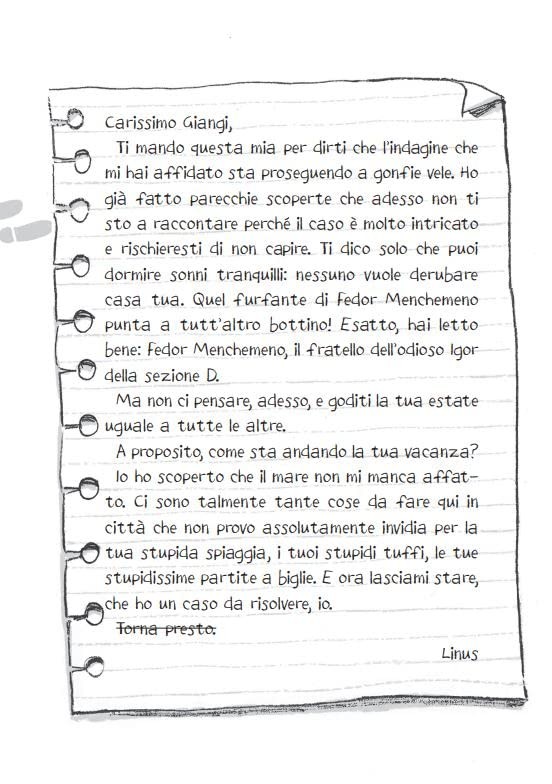 Carissimo Giangi,
Ti mando questa mia per dirti che l'indagine che
mi hai affidato sta proseguendo a gonfie vele. Ho
già fatto parecchie scoperte che adesso non ti
sto a raccontare perché il caso è molto intricato
e rischieresti di non capire. Ti dico solo che puoi
dormire sonni tranquilli: nessuno vuole derubare
casa tua. Quel furfante di Fedor Menchemeno
punta a tutt'altro bottino! Esatto, hai letto
bene: Fedor Menchemeno, il fratello dell'odioso Igor
della sezione D.
Ma non ci pensare, adesso, e goditi la tua estate
uguale a tutte le altre.
A proposito, come sta andando la tua vacanza?
Io ho scoperto che il mare non mi manca affat-
to. Ci sono talmente tante cose da fare qui in
città che non provo assolutamente invidia per la
tua stupida spiaggia, i tuoi stupidi tuffi, le tue
stupidissime partite a biglie. E ora lasciami stare,
che ho un caso da risolvere, io.
Torna presto.
Linus